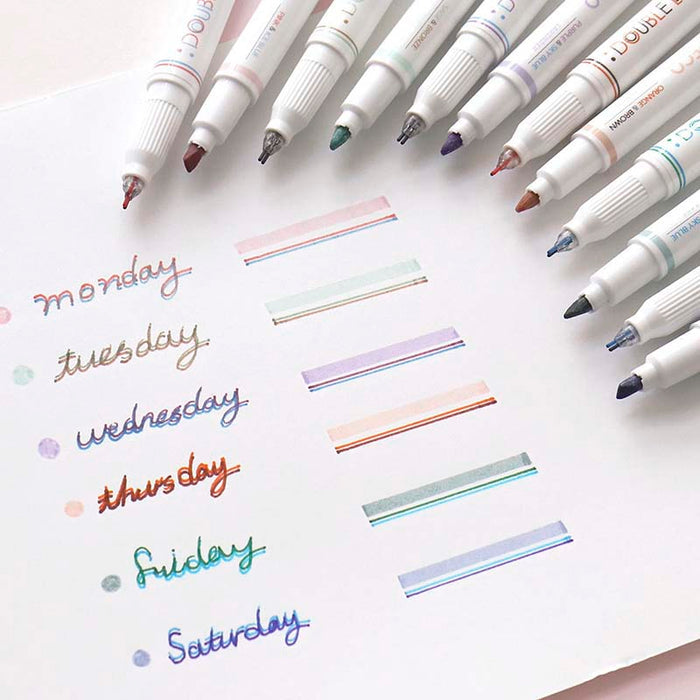 DOUBLE
PINK & ICE BLUE
& BRONZE
PURPLE & SKY BLUE
DOUBLE
ORANGE & BROWN
SKY BLUE
monday
tuesday
wednesday
thursday
friday
Saturday